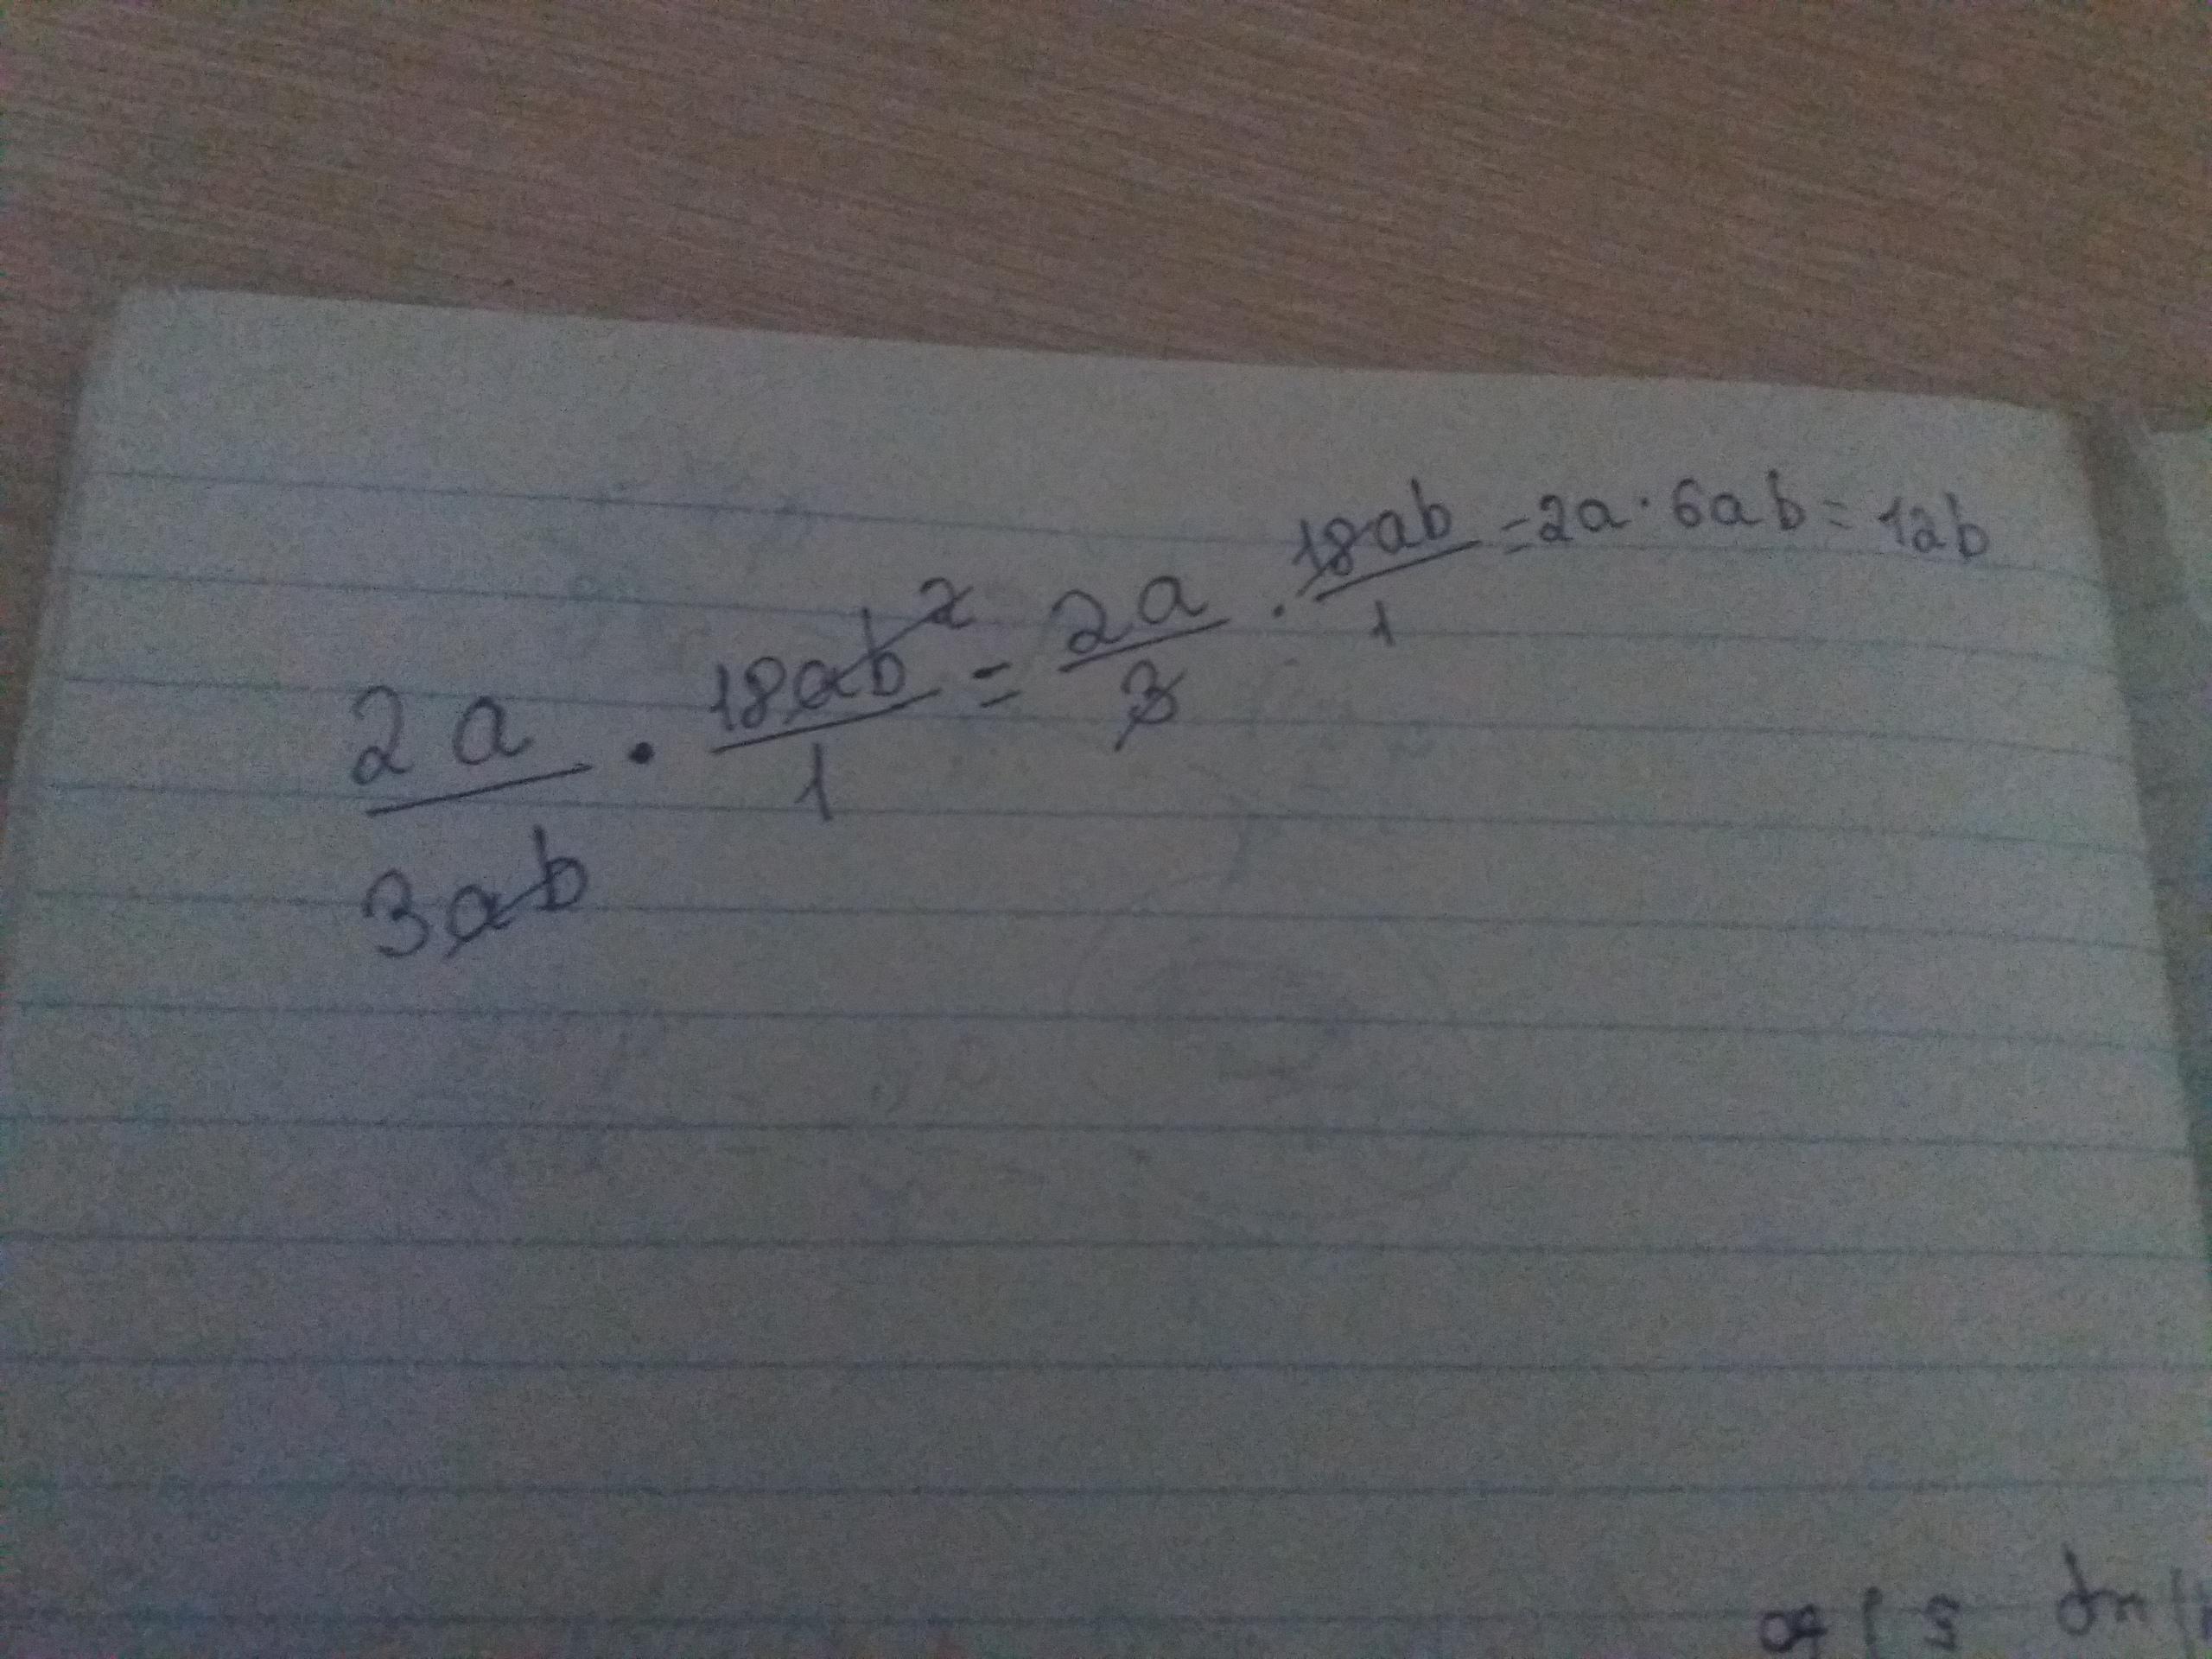 2a/3ab · 18ab²/1 = 2a/3 · 18ab/1 = 2a · 6ab = 12b